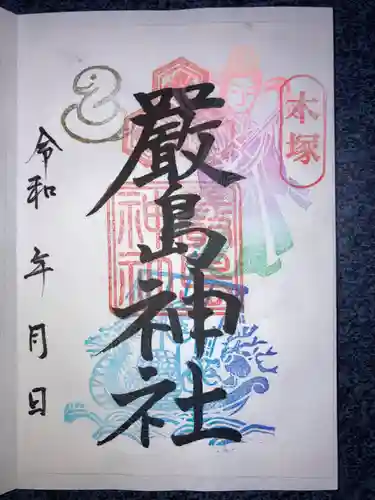 木塚
厳島神社
令和 年 月 日